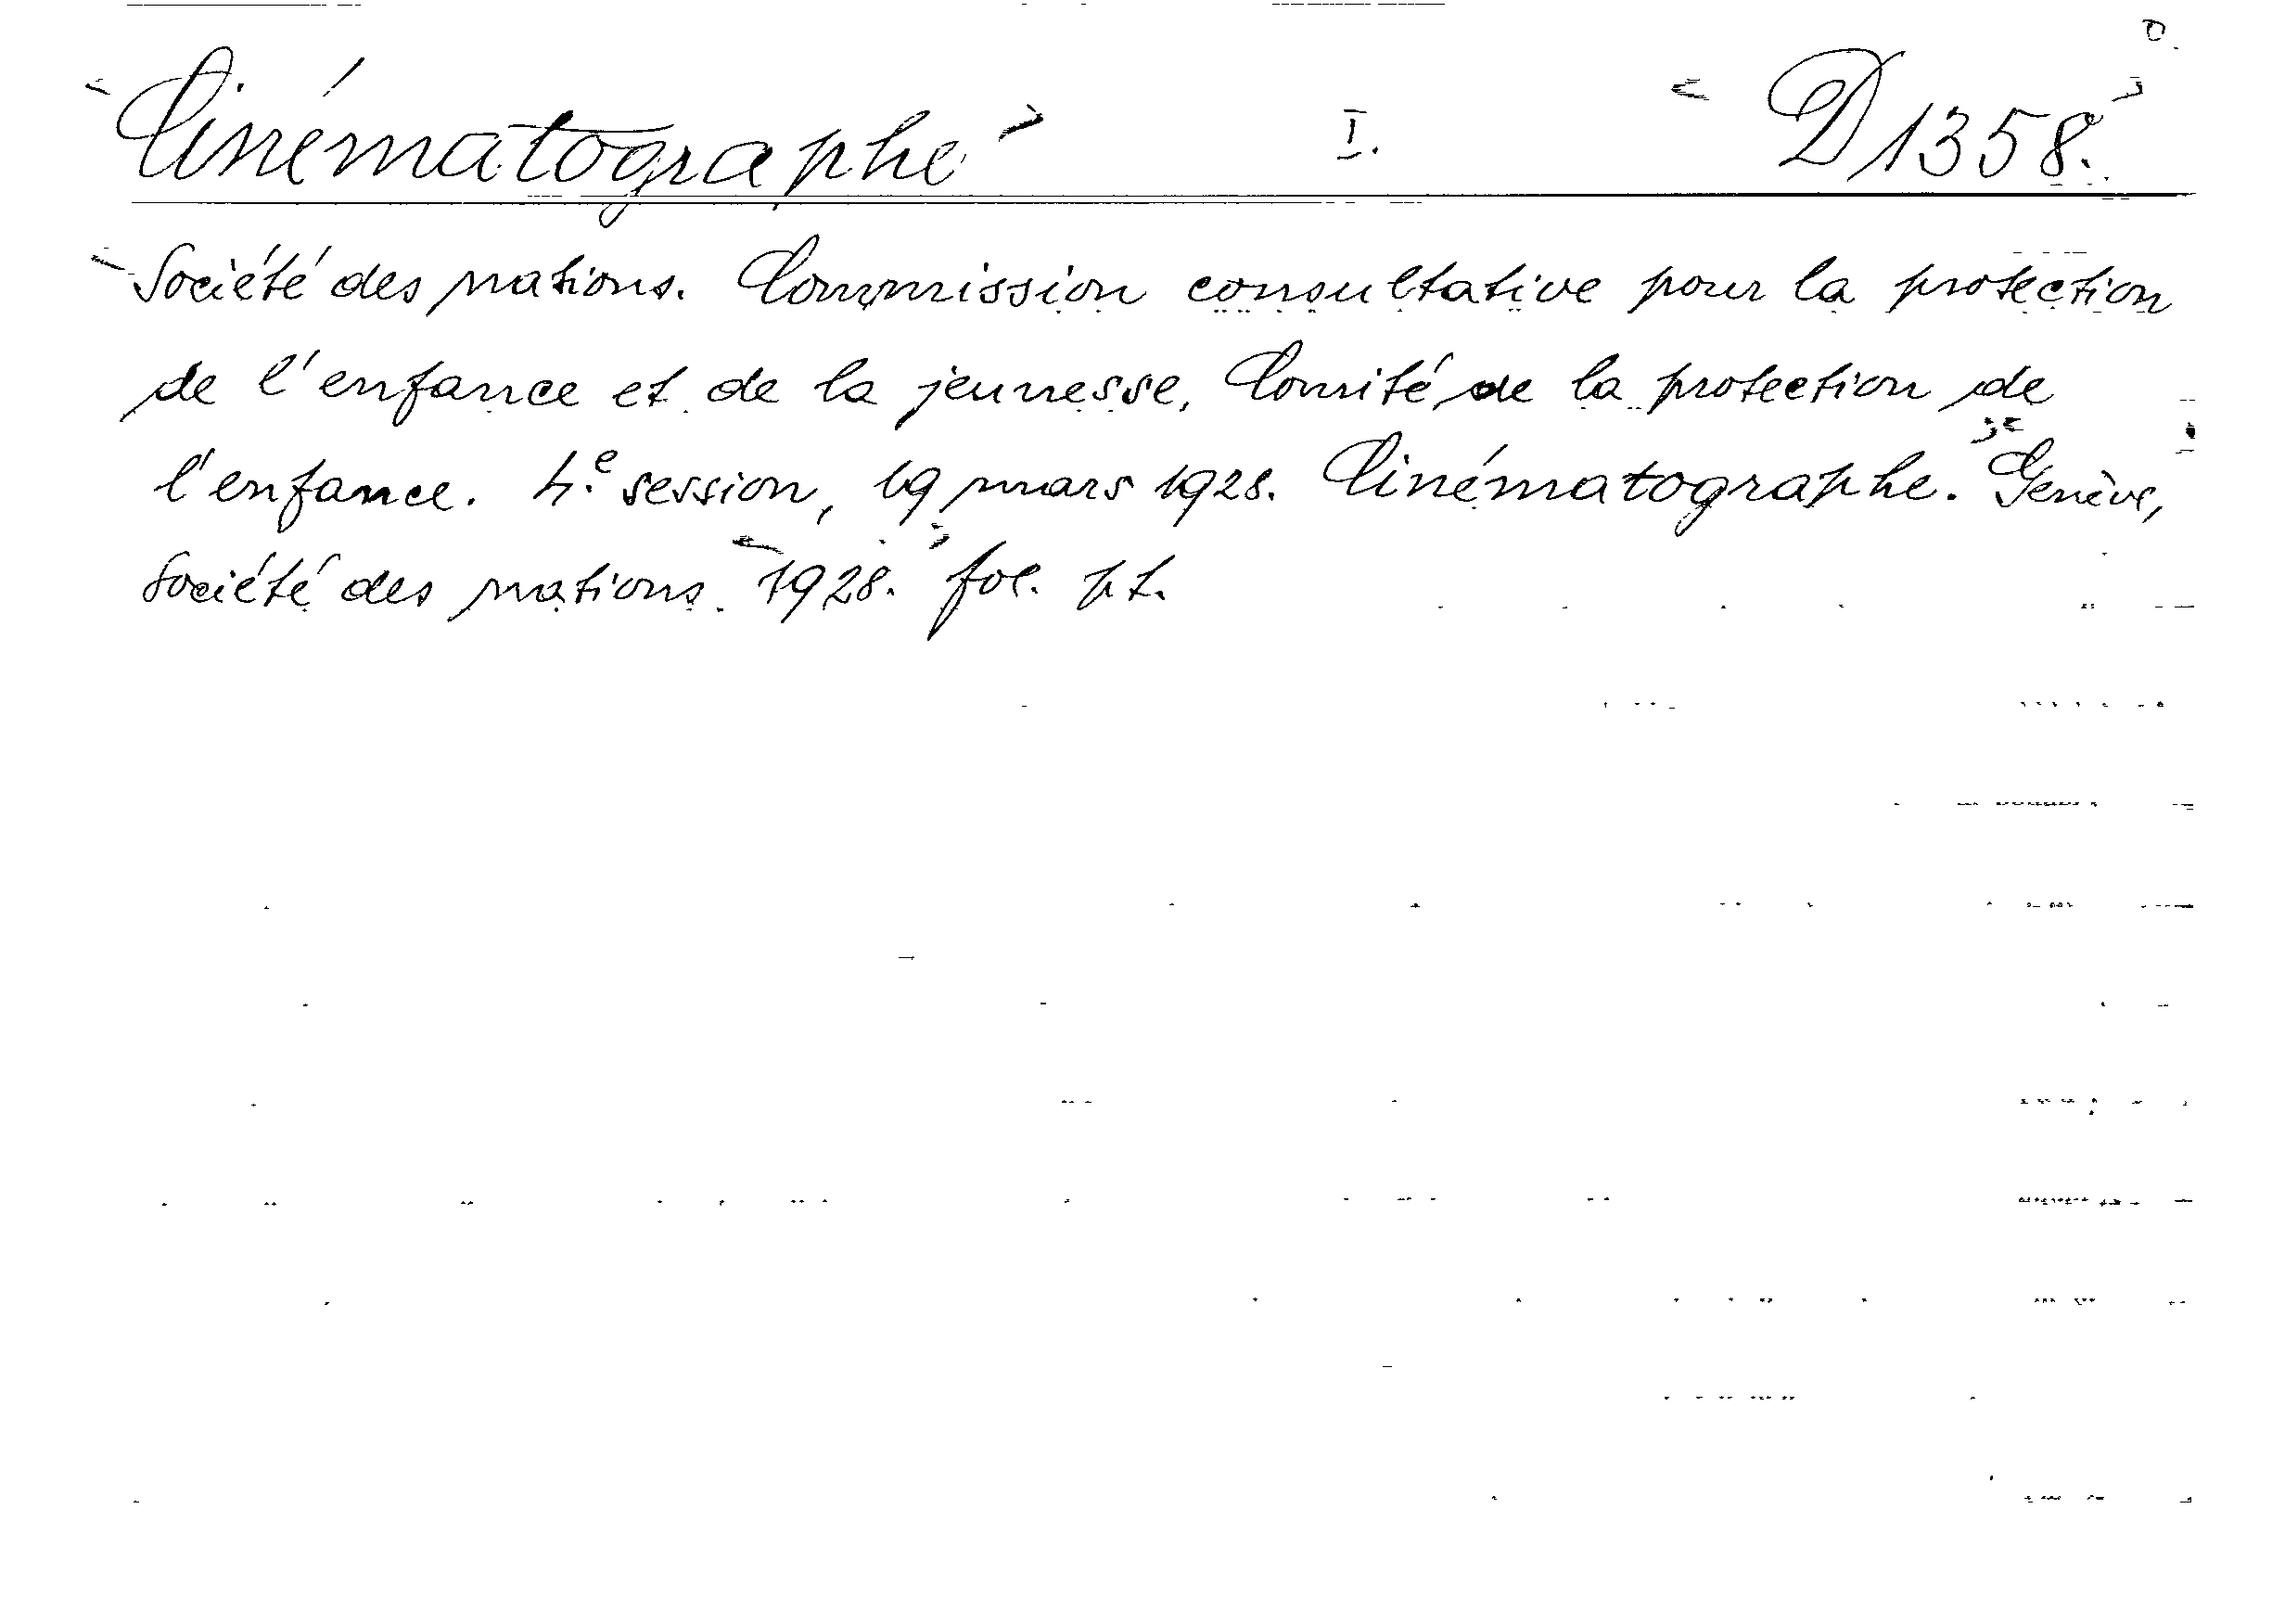 Cinématographe I. D 1358.
Société des nations. Commission consultative pour la protection
de l'enfance et de la jeunesse, Comité de la protection de
l'enfance. 4.e session, 19 mars 1928. Cinématographe. Genève,
Société des nations. 1928. fol. pt.